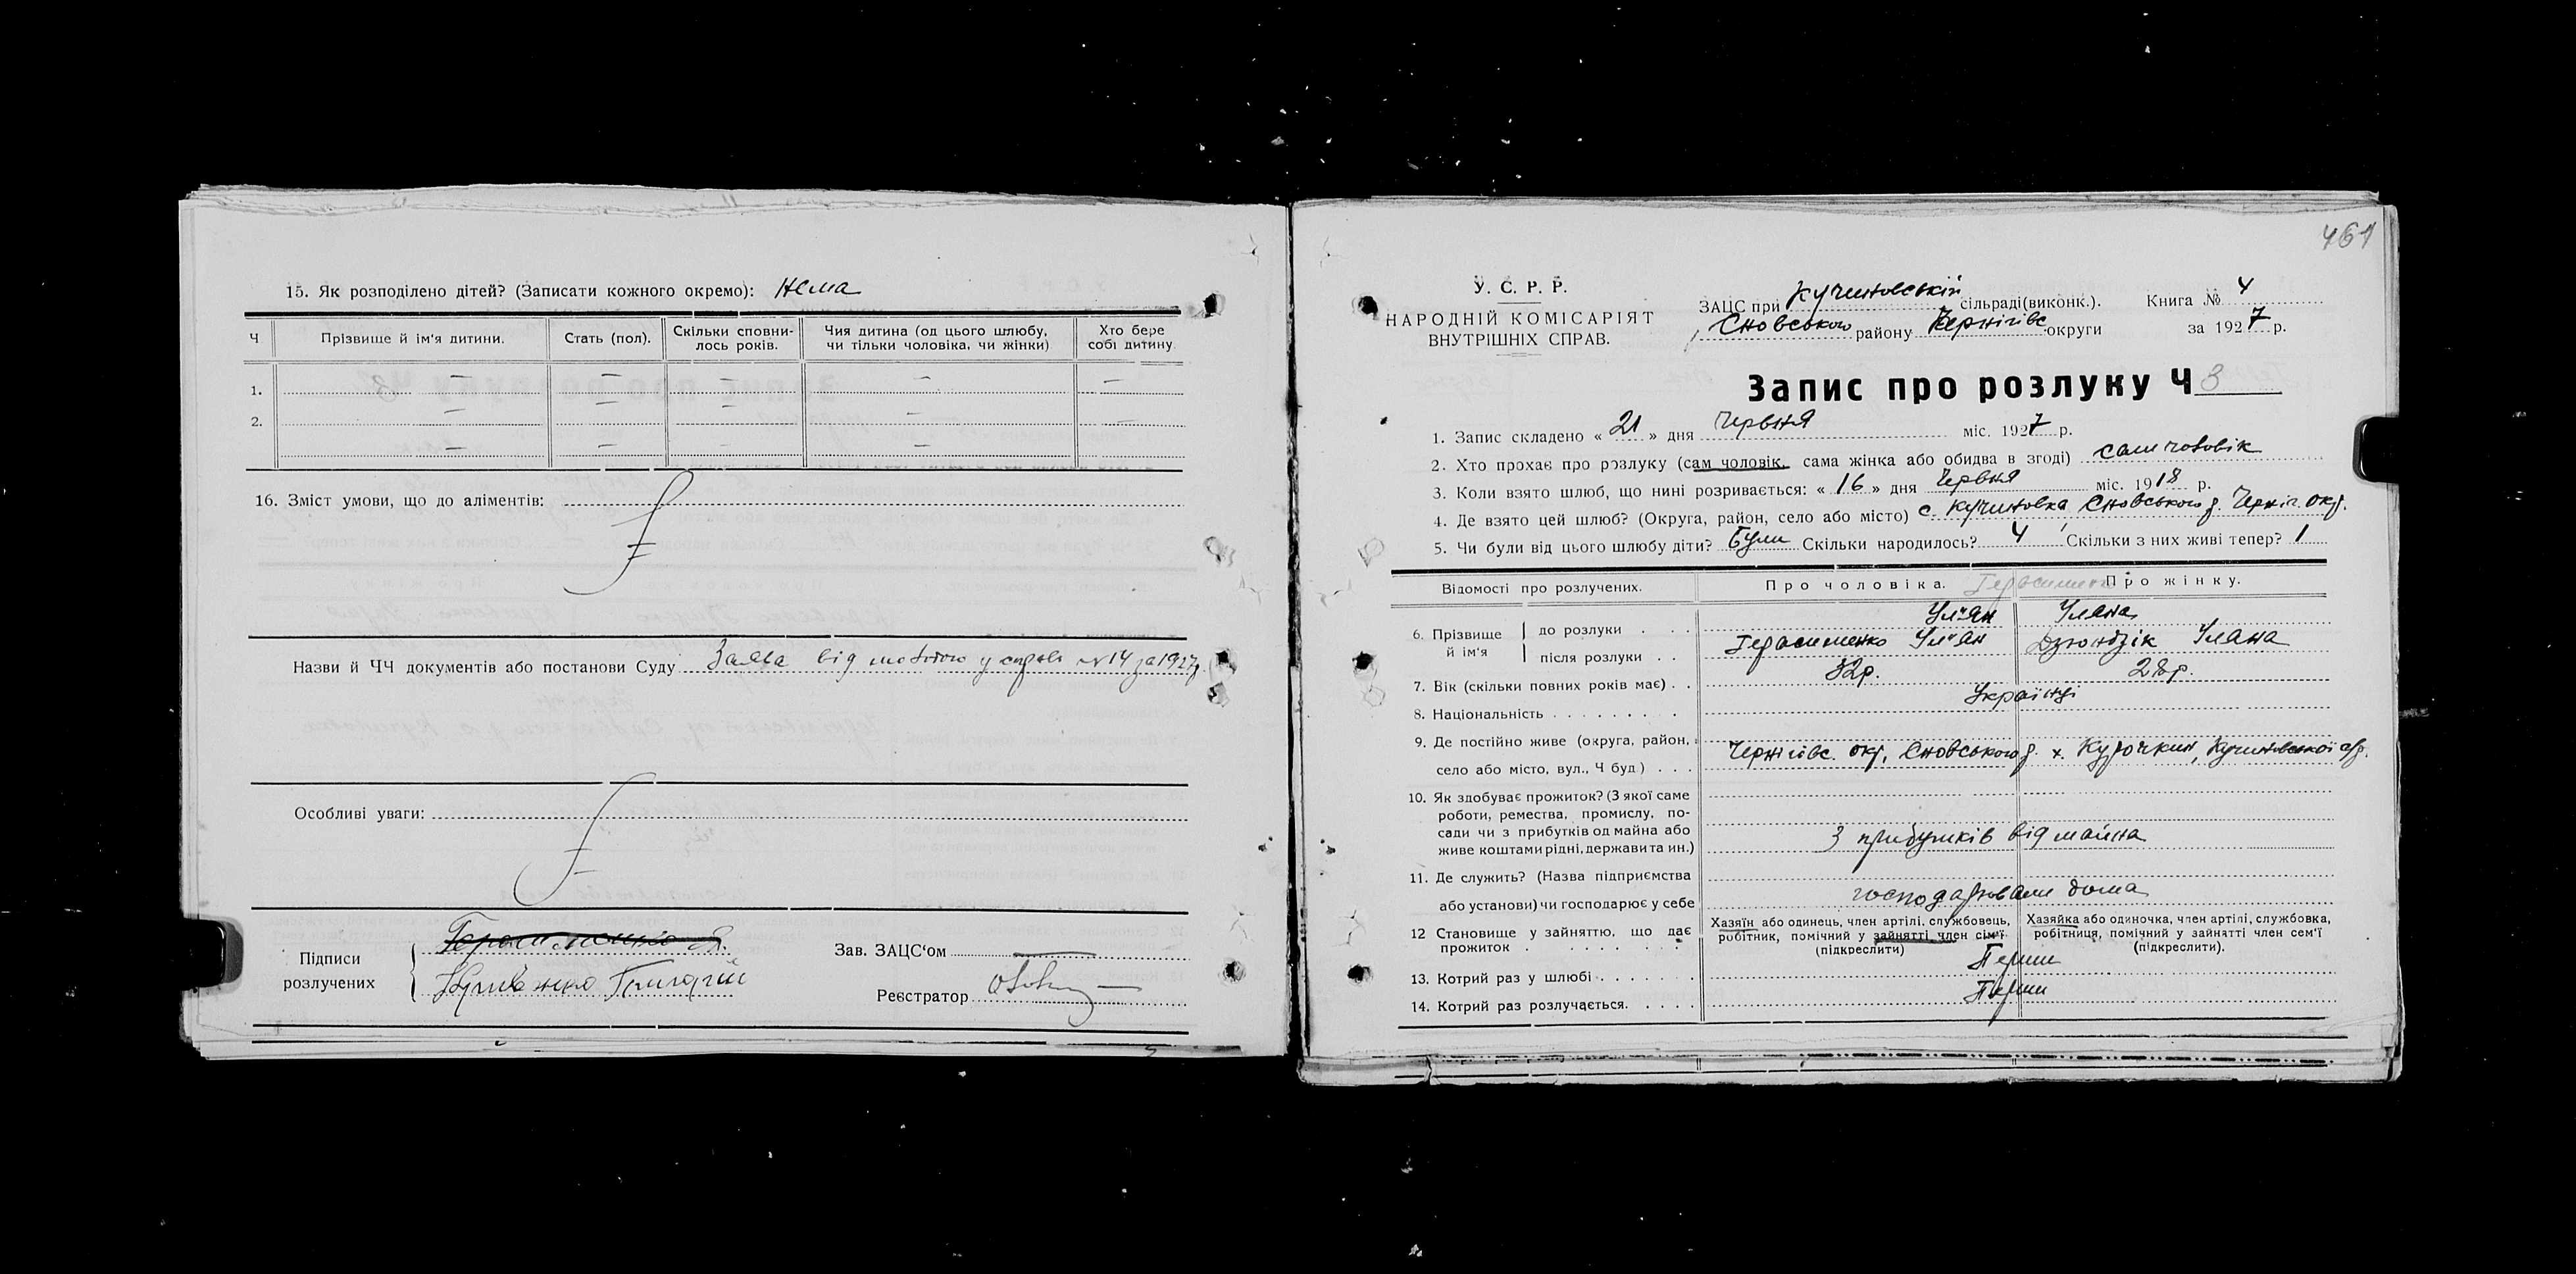 15. Як розподілено дітей? (Записати кожного окремо): Нема
Ч
Прізвище й ім'я дитини.
Стать (пол).
Скільки сповни-
лось років.
Чия дитина (од цього шлюбу,
чи тільки чоловіка, чи жінки)
Хто бере
собі дитину
1. — — — — —
2. — — — — —
— — —
16. Зміст умови, що до аліментів:
Назви й ЧЧ документів або постанови Суду Заява від у справі № 14 за 1927 р.
Особливі уваги:
Підписи
розлучених
Герасименко Я.
Григорій
Зав. ЗАЦС'ом —
Реєстратор
461
У. С. Р. Р.
НАРОДНІЙ КОМІСАРІЯТ
ВНУТРІШНІХ СПРАВ.
ЗАЦС при Кучиновській сільраді(виконк.).
Сновського району Чернігівс округи
Книга № 4
за 1927 р.
Запис про розлуку Ч 3
1. Запис складено « 21 » дня Червня міс. 1927 р.
2. Хто прохає про розлуку (сам чоловік, сама жінка або обидва в згоді) сам чоловік
3. Коли взято шлюб, що нині розривається: « 16 » дня Червня міс. 1918 р.
4. Де взято цей шлюб? (Округа, район, село або місто) с. Кучиновка Сновського р. Черніг. окр.
5. Чи були від цього шлюбу діти? Були Скільки народилось? 4 Скільки з них живі тепер? 1
Відомості про розлучених.
Про чоловіка.
Про жінку.
6. Прізвище
й ім'я
до розлуки . . .
Герасименко
Ул'ян
Уляна
після розлуки . .
Герасименко Ул'ян
Дзюндзік Уляна
7. Вік (скільки повних років має) . . 32р. 28р.
8. Національність . . . . . . . . Українці
9. Де постійно живе (округа, район,
село або місто, вул., Ч буд) . . .
Чернігівс. окр, Сновського р х. Курочкин, Кучиновської с/р.
10. Як здобуває прожиток? (З якої саме
роботи, ремества, промислу, по-
сади чи з прибутків од майна або
живе коштами рідні, держави та ин.)
З прибутків від майна
11. Де служить? (Назва підприємства
або установи) чи господарює у себе
господарювали дома
12 Становище у зайняттю, що дає
прожиток
Хазяїн або одинець, член артілі, службовець,
робітник, помічний у зайнятті член сім'ї
(підкреслити)
Хазяйка або одиночка, член артілі, службовка,
робітниця, помічний у зайнятті член сем'ї
(підкреслити).
13. Котрий раз у шлюбі . . . . . . . Перши
14. Котрий раз розлучається. . . . . Перши